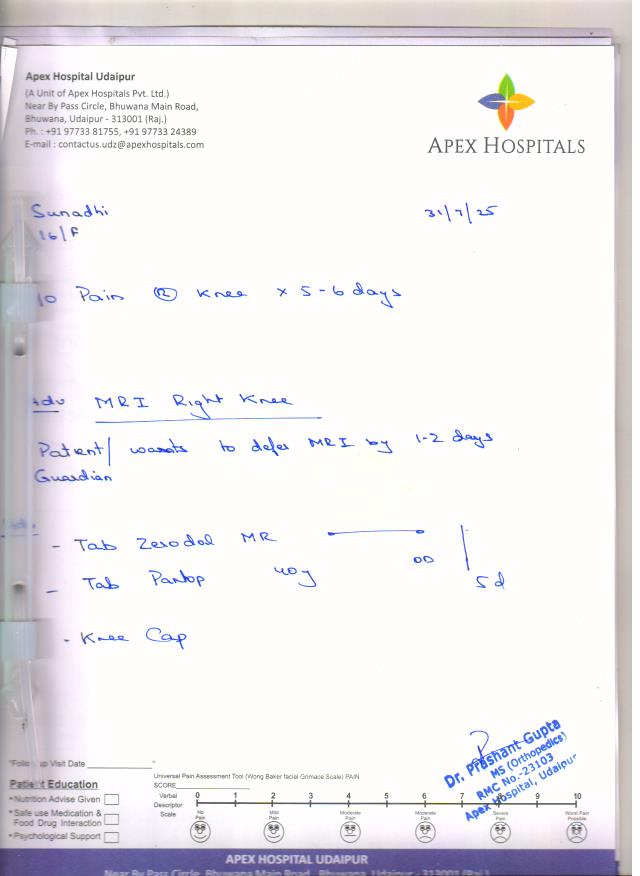 Apex Hospital Udaipur
(A Unit of Apex Hospitals Pvt. Ltd.)
Near By Pass Circle, Bhuwana Main Road,
Bhuwana, Udaipur - 313001 (Raj.)
Ph. : +91 97733 81755, +91 97733 24389
E-mail : contactus.udz@apexhospitals.com
APEX HOSPITALS
Sunadhi 31/7/25
16/F
Pain (R) Knee x 5-6 days
Adv MRI Right Knee
Patient/ wants to defer MRI by 1-2 days
Guardian
- Tab Zerodol MR
- Tab Pantop 40g OD 5d
- Knee Cap
Dr. Prashant Gupta
MS (Orthopedics)
RMC No.-23103
Apex Hospital, Udaipur
"Follow up Visit Date ____________"
Patient Education
• Nutrition Advise Given
• Safe use Medication &
Food Drug Interaction
• Psychological Support
Universal Pain Assessment Tool (Wong Baker facial Grimace Scale) PAIN
SCORE____________
Verbal Descriptor Scale
0 1 2 3 4 5 6 7 8 9 10
No Pain Mild Pain Moderate Pain Moderate Pain Severe Pain Worst Pain Possible
APEX HOSPITAL UDAIPUR
Near By Pass Circle, Bhuwana Main Road, Bhuwana, Udaipur - 313001 (Raj.)